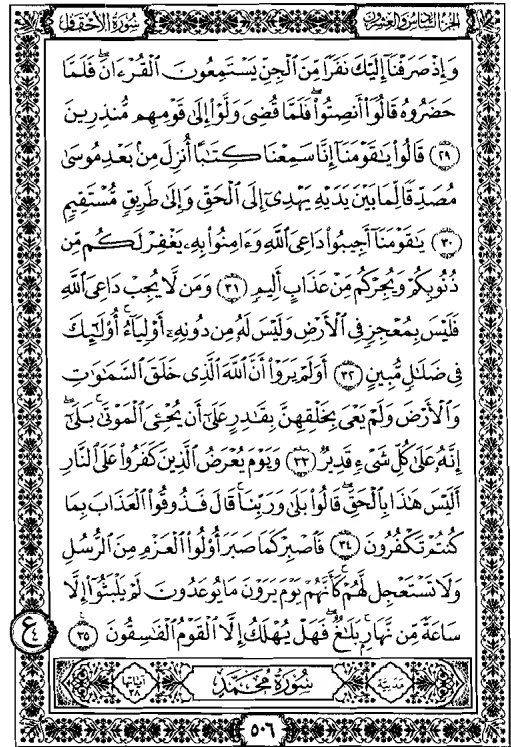 الجزء السادس والعشرون سورة الأحقاف
وَإِذْ صَرَفْنَآ إِلَيْكَ نَفَرًا مِّنَ ٱلْجِنِّ يَسْتَمِعُونَ ٱلْقُرْءَانَ فَلَمَّا
حَضَرُوهُ قَالُوٓا۟ أَنصِتُوا۟ ۖ فَلَمَّا قُضِىَ وَلَّوْا۟ إِلَىٰ قَوْمِهِم مُّنذِرِينَ
٢٩ قَالُوا۟ يَٰقَوْمَنَآ إِنَّا سَمِعْنَا كِتَٰبًا أُنزِلَ مِنۢ بَعْدِ مُوسَىٰ
مُصَدِّقًا لِّمَا بَيْنَ يَدَيْهِ يَهْدِىٓ إِلَى ٱلْحَقِّ وَإِلَىٰ طَرِيقٍ مُّسْتَقِيمٍ
٣٠ يَٰقَوْمَنَآ أَجِيبُوا۟ دَاعِىَ ٱللَّهِ وَءَامِنُوا۟ بِهِۦ يَغْفِرْ لَكُم مِّن
ذُنُوبِكُمْ وَيُجِرْكُم مِّنْ عَذَابٍ أَلِيمٍ ٣١ وَمَن لَّا يُجِبْ دَاعِىَ ٱللَّهِ
فَلَيْسَ بِمُعْجِزٍ فِى ٱلْأَرْضِ وَلَيْسَ لَهُۥ مِن دُونِهِۦٓ أَوْلِيَآءُ ۚ أُو۟لَٰٓئِكَ
فِى ضَلَٰلٍ مُّبِينٍ ٣٢ أَوَلَمْ يَرَوْا۟ أَنَّ ٱللَّهَ ٱلَّذِى خَلَقَ ٱلسَّمَٰوَٰتِ
وَٱلْأَرْضَ وَلَمْ يَعْىَ بِخَلْقِهِنَّ بِقَٰدِرٍ عَلَىٰٓ أَن يُحْـِۧىَ ٱلْمَوْتَىٰ ۚ بَلَىٰٓ
إِنَّهُۥ عَلَىٰ كُلِّ شَىْءٍ قَدِيرٌ ٣٣ وَيَوْمَ يُعْرَضُ ٱلَّذِينَ كَفَرُوا۟ عَلَى ٱلنَّارِ
أَلَيْسَ هَٰذَا بِٱلْحَقِّ ۖ قَالُوا۟ بَلَىٰ وَرَبِّنَا ۚ قَالَ فَذُوقُوا۟ ٱلْعَذَابَ بِمَا
كُنتُمْ تَكْفُرُونَ ٣٤ فَٱصْبِرْ كَمَا صَبَرَ أُو۟لُوا۟ ٱلْعَزْمِ مِنَ ٱلرُّسُلِ
وَلَا تَسْتَعْجِل لَّهُمْ ۚ كَأَنَّهُمْ يَوْمَ يَرَوْنَ مَا يُوعَدُونَ لَمْ يَلْبَثُوٓا۟ إِلَّا
سَاعَةً مِّن نَّهَارٍۭ ۚ بَلَٰغٌ ۚ فَهَلْ يُهْلَكُ إِلَّا ٱلْقَوْمُ ٱلْفَٰسِقُونَ ٣٥
ع ٤
مدنية سُورَةُ مُحَمَّدٍ آياتها ٣٨
٥٠٦